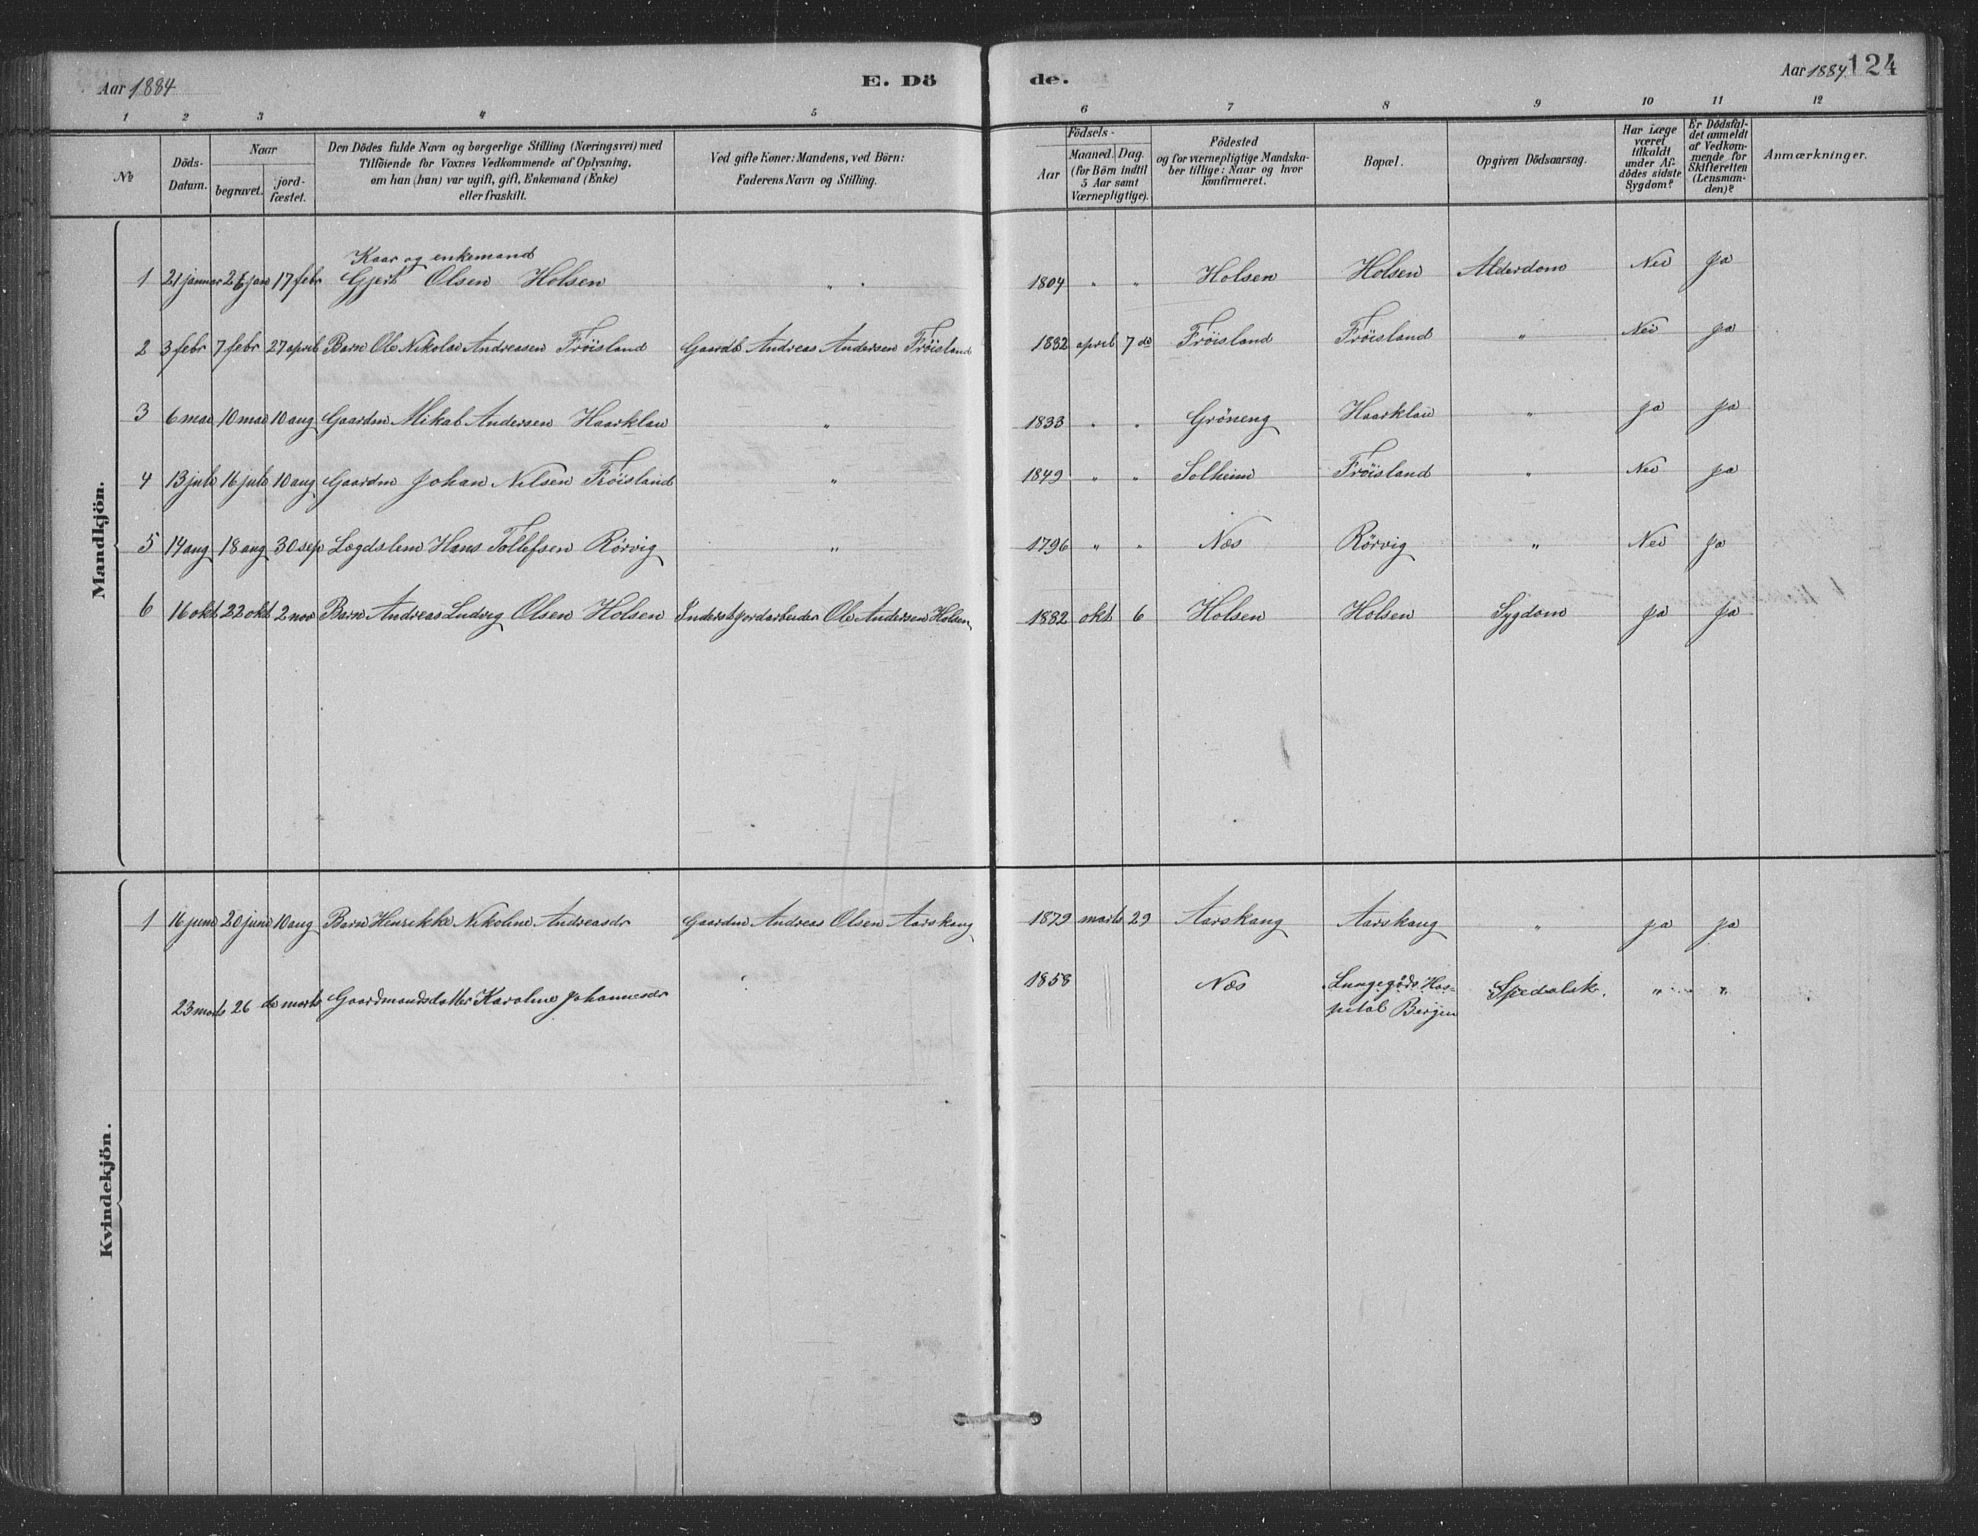 Aar 1884 E. Dö de. Aar 1884. 124
1 2 3 4 5 6 7 8 9 10 11 12
№
Döds-Datum.
Naar
begravet.
jord-fæstet.
Den Dödes fulde Navn og borgerlige Stilling (Næringsvei) med
Tilföiende for Voxnes Vedkommende af Oplysning,
om han (hun) var ugift, gift, Enkemand (Enke)
eller fraskilt.
Ved gifte Koner: Mandens, ved Börn:
Faderens Navn og Stilling.
Födsels-
Aar
Maaned. Dag.
(for Börn indtil
5 Aar samt
Værnepligtige).
Födested
og for værnepligtige Mandska-
ber tillige: Naar og hvor
konfirmeret.
Bopæl.
Opgiven Dödsaarsag.
Har Læge
været
tilkaldt
under Af-
dödes sidste
Sygdom?
Er Dödsfal-
det anmeldt
af Vedkom-
mende for
Skifteretten
(Lensman-
den)?
Anmærkninger.
Mandkjön.
Kaar og enkemand
1 21 januar 26 jan 17 febr Gjert Olsen Holsen " 1804 " " Holsen Holsen Alderdom Nei ja
2 3 febr 7 febr 27 april Barn Ole Nikolai Andreasen Fröisland Gaardb Andreas Andersen Fröisland 1882 april 7 de Fröisland Fröisland " Nei ja
3 6 mai 10 mai 10 aug Gaardm Mikal Andersen Haarklau " 1833 " " Gröneng Haarklau " ja ja
4 13 juli 16 juli 10 aug Gaardm Johan Nilsen Fröisland " 1849 " " Solheim Fröisland " Nei ja
5 14 aug 18 aug 30 sep Lægdslem Hans Tollefsen Rörvig " 1796 " " Næs Rörvig " Nei ja
6 16 okt 22 okt 2 nov Barn Andreas Ludvig Olsen Holsen Inderst jordarbeider Ole Andersen Holsen 1882 okt 6 Holsen Holsen Sygdom ja ja
Kvindekjön.
1 16 juni 20 juni 10 aug Barn Henrikke Nikoline Andreasdr Gaardm Andreas Olsen Aarskang 1879 marts 29 Aarskang Aarskang " ja ja
23 marts 26 de marts Gaardmandsdatter Karoline Johannesdr 1858 Næs Lungegöds Hos-
pital Bergen Spedalsk. " "